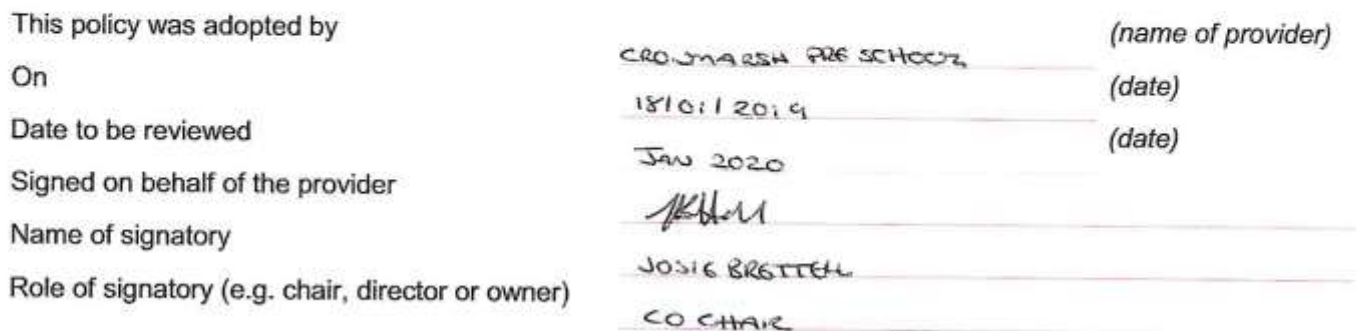 This policy was adopted by CROWMARSH PRE SCHOOL (name of provider)
On 18/01/2019 (date)
Date to be reviewed JAN 2020 (date)
Signed on behalf of the provider
Name of signatory JOSIE BRETTELL
Role of signatory (e.g. chair, director or owner) CO CHAIR